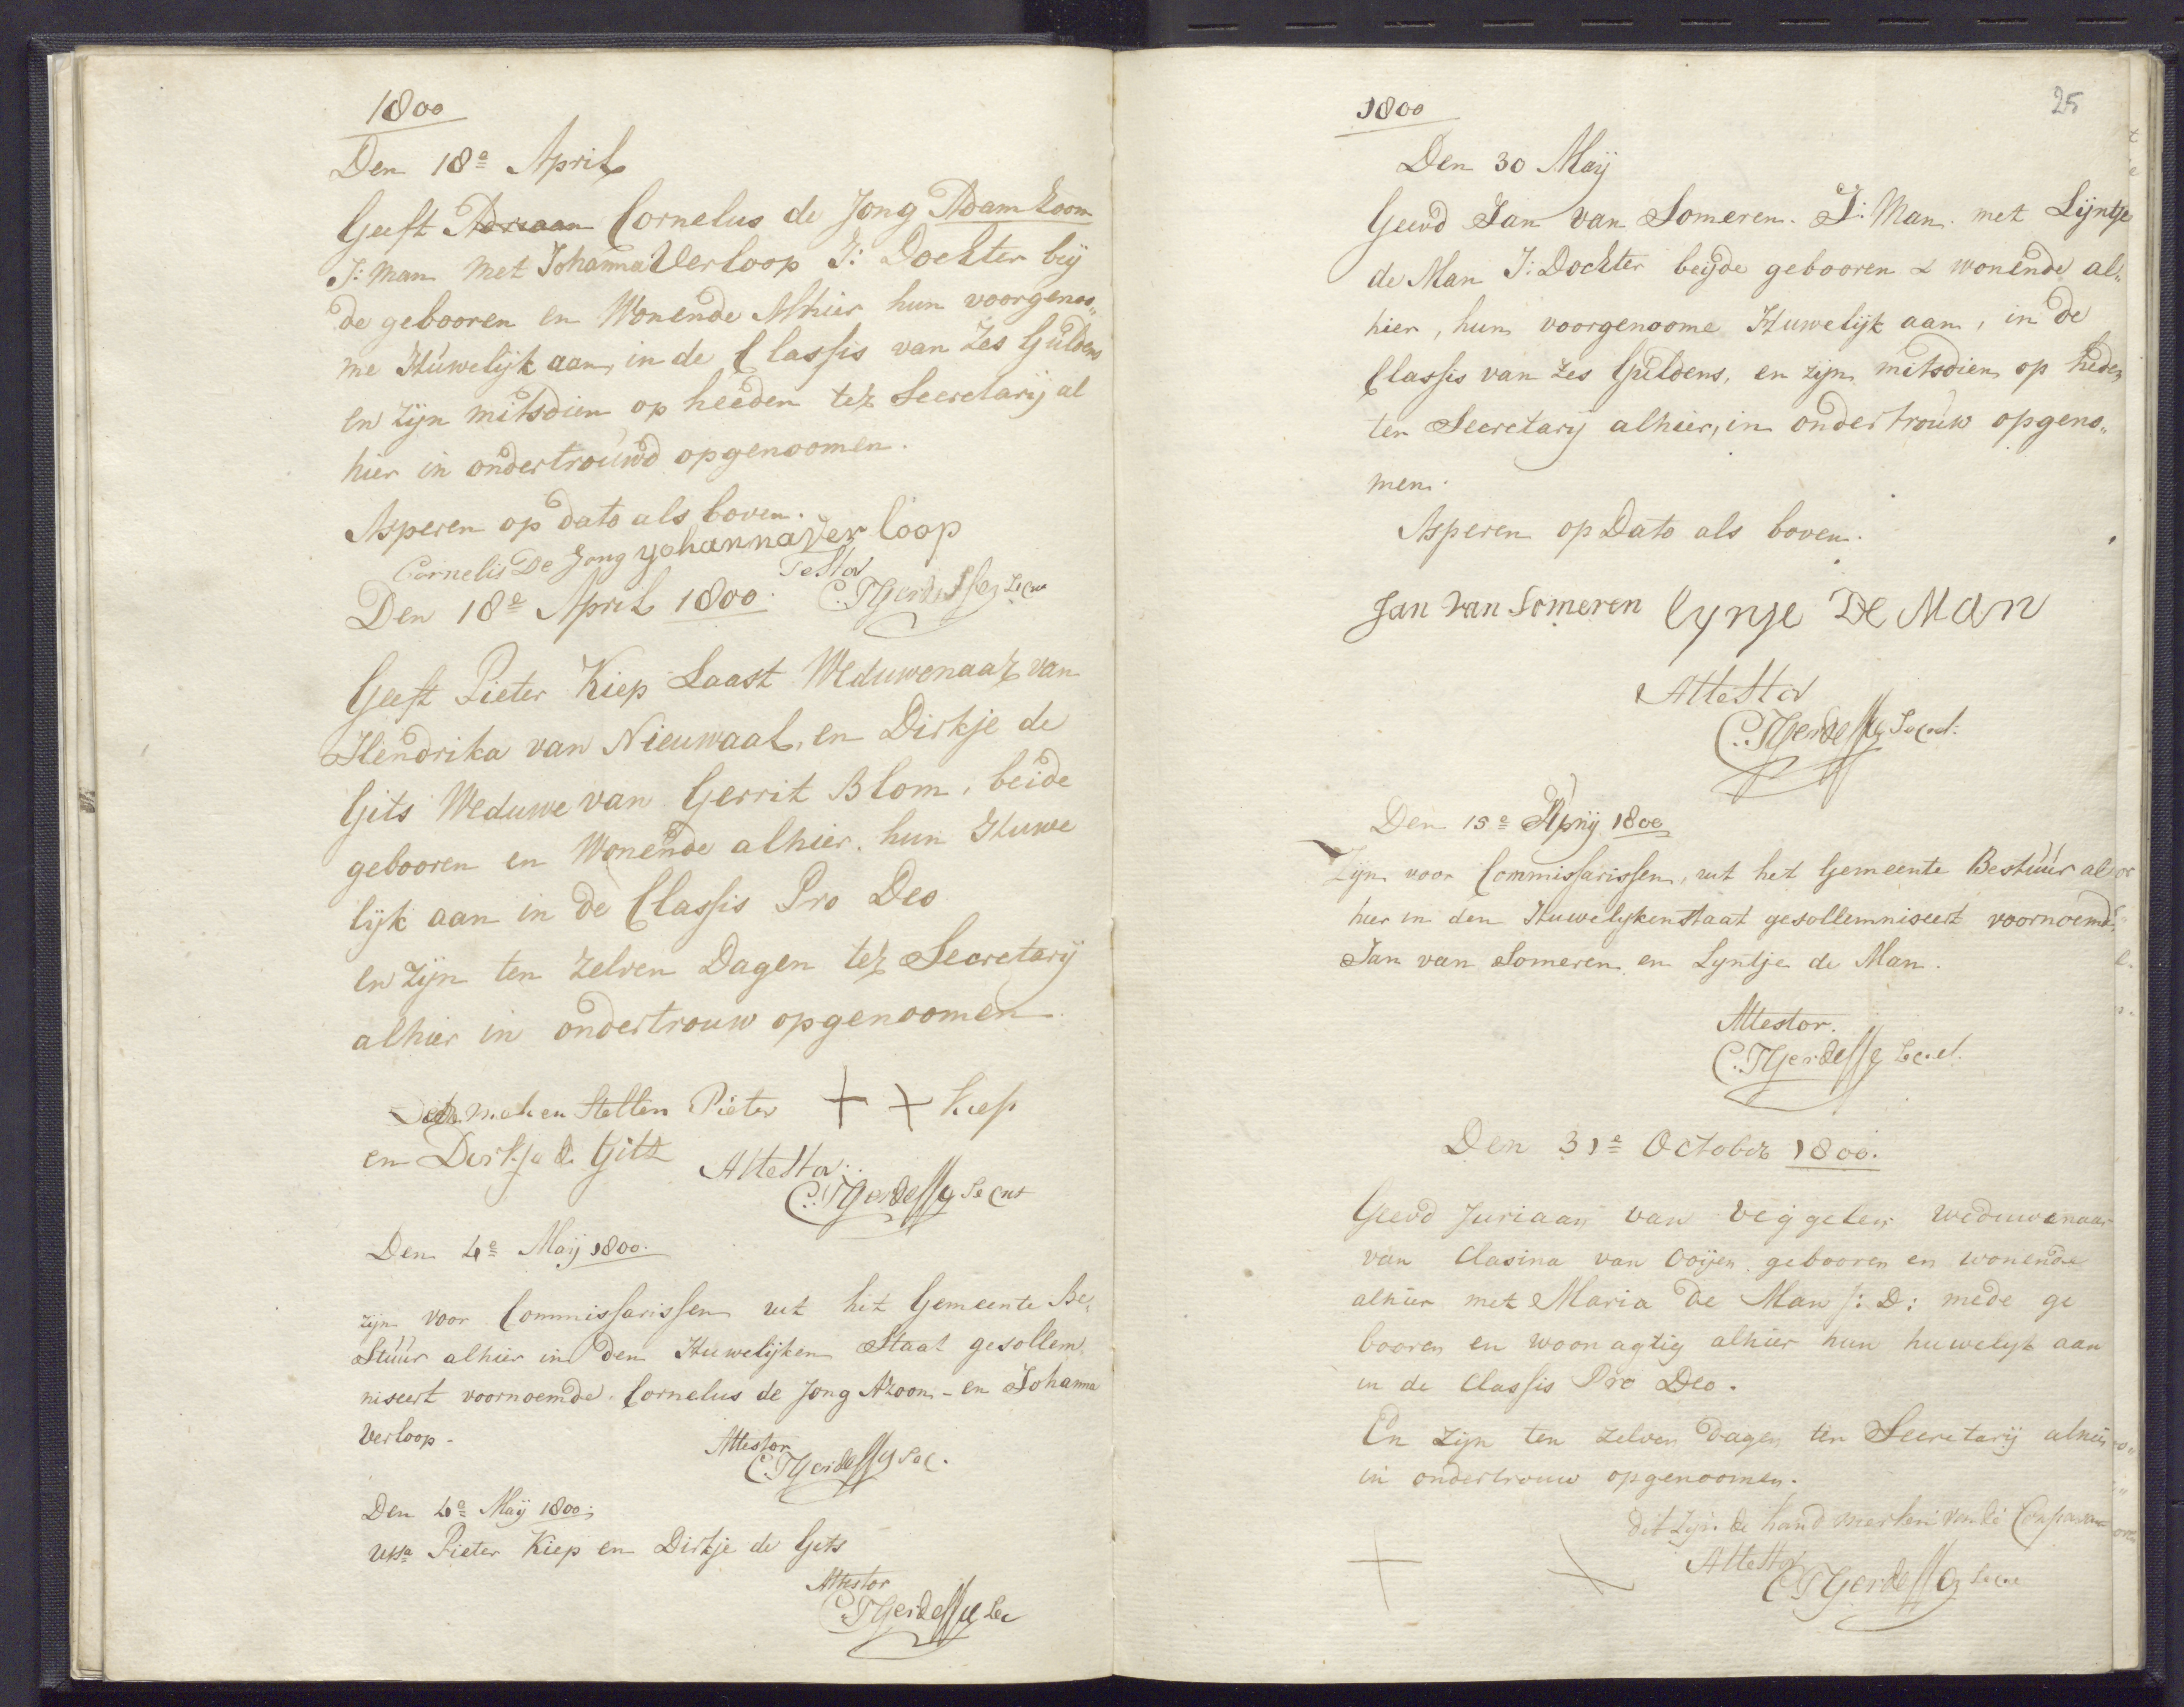 1800
Den 18e April
Geeft Adriaan Cornelus de Jong Adam Zoon
J: man met Johanna Verloop J: Dochter bey
de gebooren en Wonende Alhier hun voorgenoo„
me Huwelijk aan, in de Classis van Zes Guldens
en zijn mitsdien op heeden ter Secretarij al
hier in ondertrouwd opgenoomen.
Asperen op dato als boven.
Cornelis De Jong yohanna Ver loop
Testor
Den 18e April 1800.
Geeft Pieter Kiep Laast Weduwenaar van
Hendrika van Nieuwaal, en Dirkje de
Gits Weduwe van Gerrit Blom, beide
gebooren en Wonende alhier. hun Huwe
lijk aan in de Classis Pro Deo
en zijn ten zelven Dagen ter Secretarij
alhier in ondertrouw opgenoomen
Stellen Pieter + + kiep
en Dirkje de Gits
Attestor
Den 4e Maij 1800.
zijn voor Commissarissen uit het Gemeente Be„
Stuur alhier in den Huwelijken Staat gesollem„
niseert voornoemde Cornelus de Jong Azoon - en Johanna
Verloop -
Attestor
Den 4e Maij 1800.
Pieter Kiep en Dirkje de Gits
Attestor
25
1800
Den 30 Maij
Geevd Jan van Someren. J: Man. met Lijntje
de Man J: Dochter beijde gebooren & wonende al„
hier, hun voorgenoome Huwelijk aan, in de
Classis van zes Guldens, en zijn mitsdien op heden
ter Secretarij alhier, in ondertrouw opgeno„
men.
Asperen op Dato als boven.
Jan van Someren lynje De Man
Attestor
Den 15e 1800
Zijn voor Commissarissen, uit het Gemeente Bestuur al
hier in den Huwelijken Staat gesollemniseert voornoemde
Jan van Someren en Lyntje de Man.
Attestor.
Den 31e October 1800.
Geevd Juriaan van Veggelen weduwenaar
van Clasina van Ooijen gebooren en wonende
alhier met Maria de Man J: D: mede ge
booren en woonagtig alhier hun huwelijk aan
in de Classis Pro Deo.
En zijn ten zelven dagen ter Secretarij alhier
in ondertrouw opgenoomen.
dit zijn de hand merken van de
+ +
Attestor